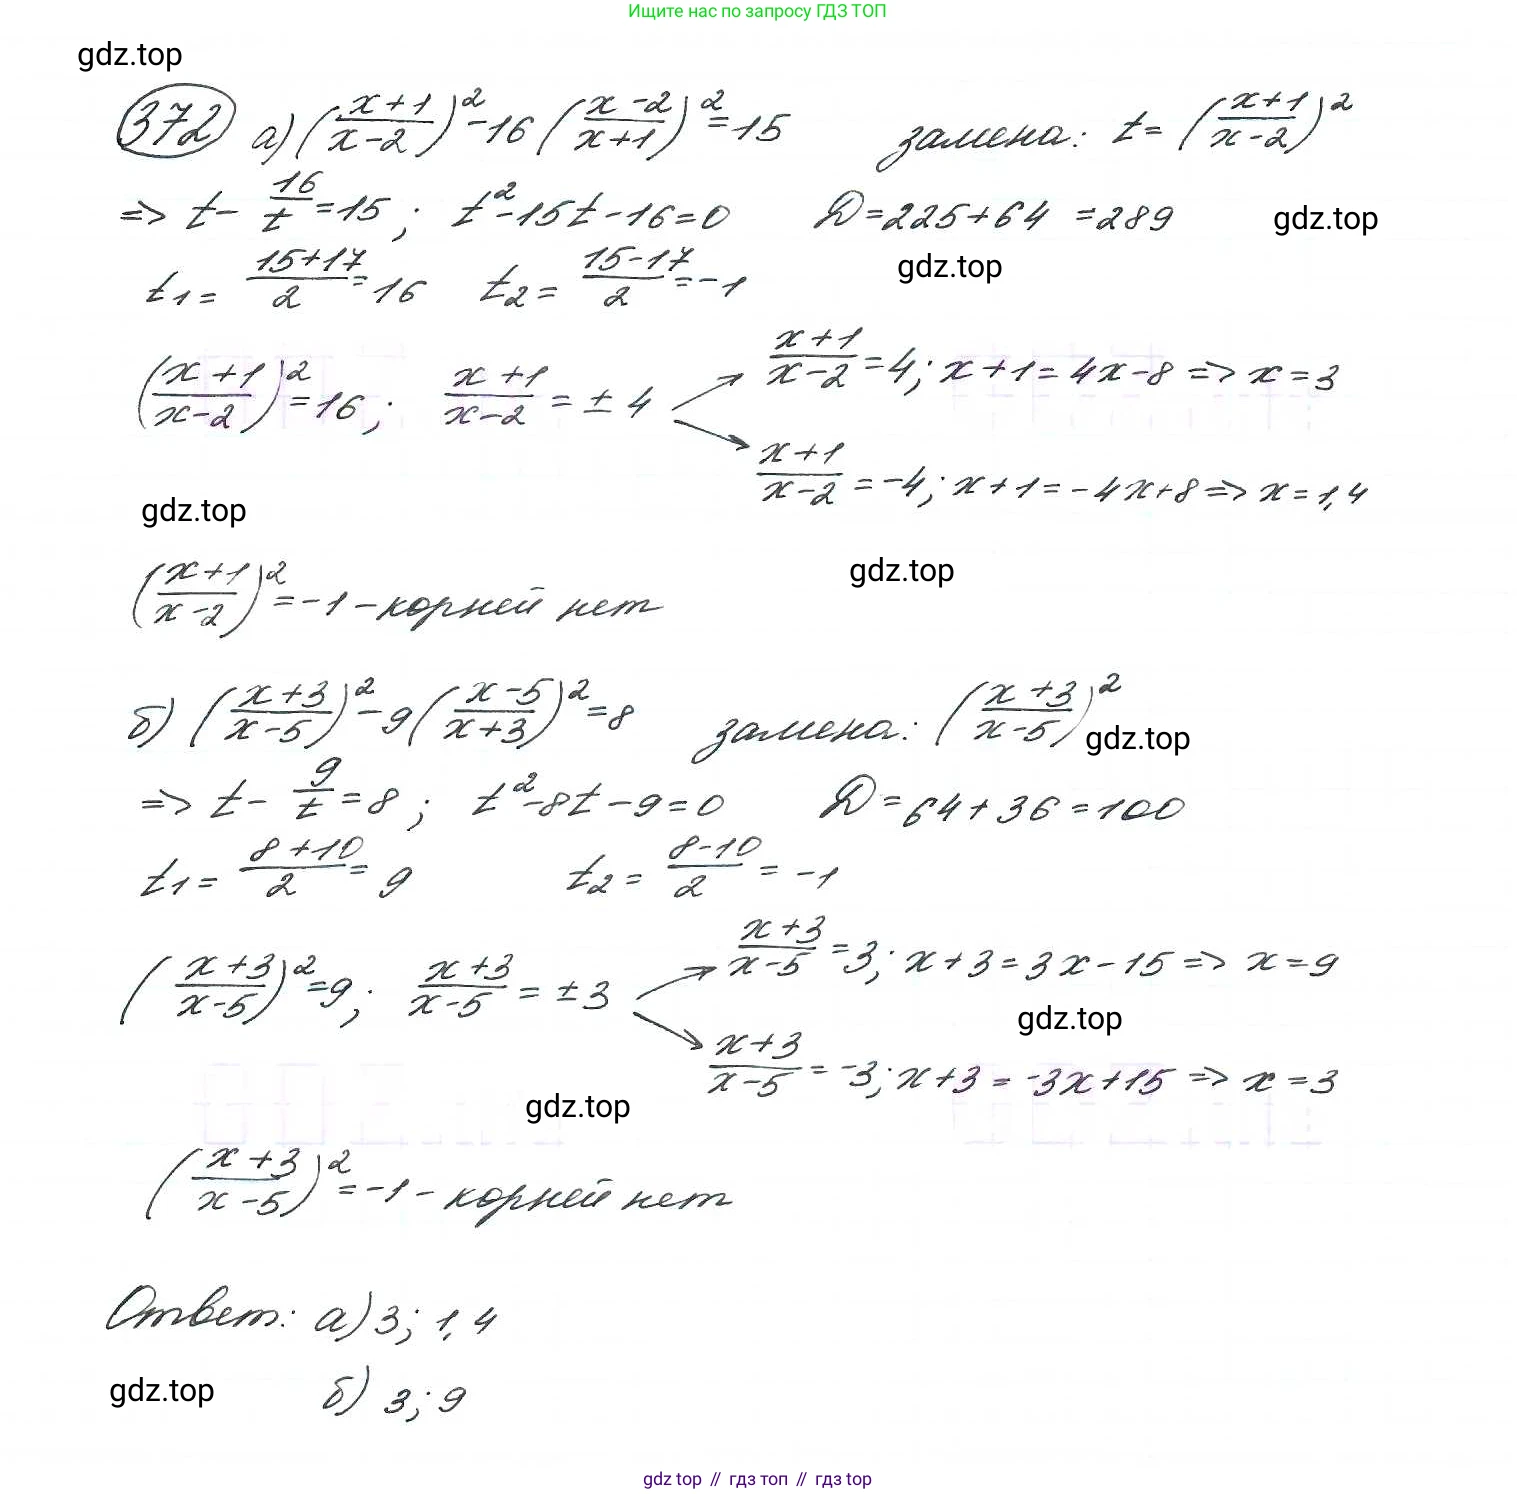 Ищите нас по запросу ГДЗ ТОП
gdz.top
372 а) ((x+1)/(x-2))² - 16 ((x-2)/(x+1))² = 15 замена: t = ((x+1)/(x-2))²
=> t - 16/t = 15; t² - 15t - 16 = 0 D = 225 + 64 = 289 gdz.top
gdz.top
t₁ = (15+17)/2 = 16 t₂ = (15-17)/2 = -1
((x+1)/(x-2))² = 16; (x+1)/(x-2) = ± 4
(x+1)/(x-2) = 4; x+1 = 4x-8 => x = 3
(x+1)/(x-2) = -4; x+1 = -4x+8 => x = 1,4
gdz.top
gdz.top
((x+1)/(x-2))² = -1 - корней нет
б) ((x+3)/(x-5))² - 9 ((x-5)/(x+3))² = 8 замена: ((x+3)/(x-5))² gdz.top
=> t - 9/t = 8; t² - 8t - 9 = 0 D = 64 + 36 = 100
t₁ = (8+10)/2 = 9 t₂ = (8-10)/2 = -1
((x+3)/(x-5))² = 9; (x+3)/(x-5) = ± 3
(x+3)/(x-5) = 3; x+3 = 3x-15 => x = 9
gdz.top
(x+3)/(x-5) = -3; x+3 = -3x+15 => x = 3
gdz.top
((x+3)/(x-5))² = -1 - корней нет
Ответ: а) 3; 1,4
gdz.top
б) 3; 9
gdz top // гдз топ // гдз top